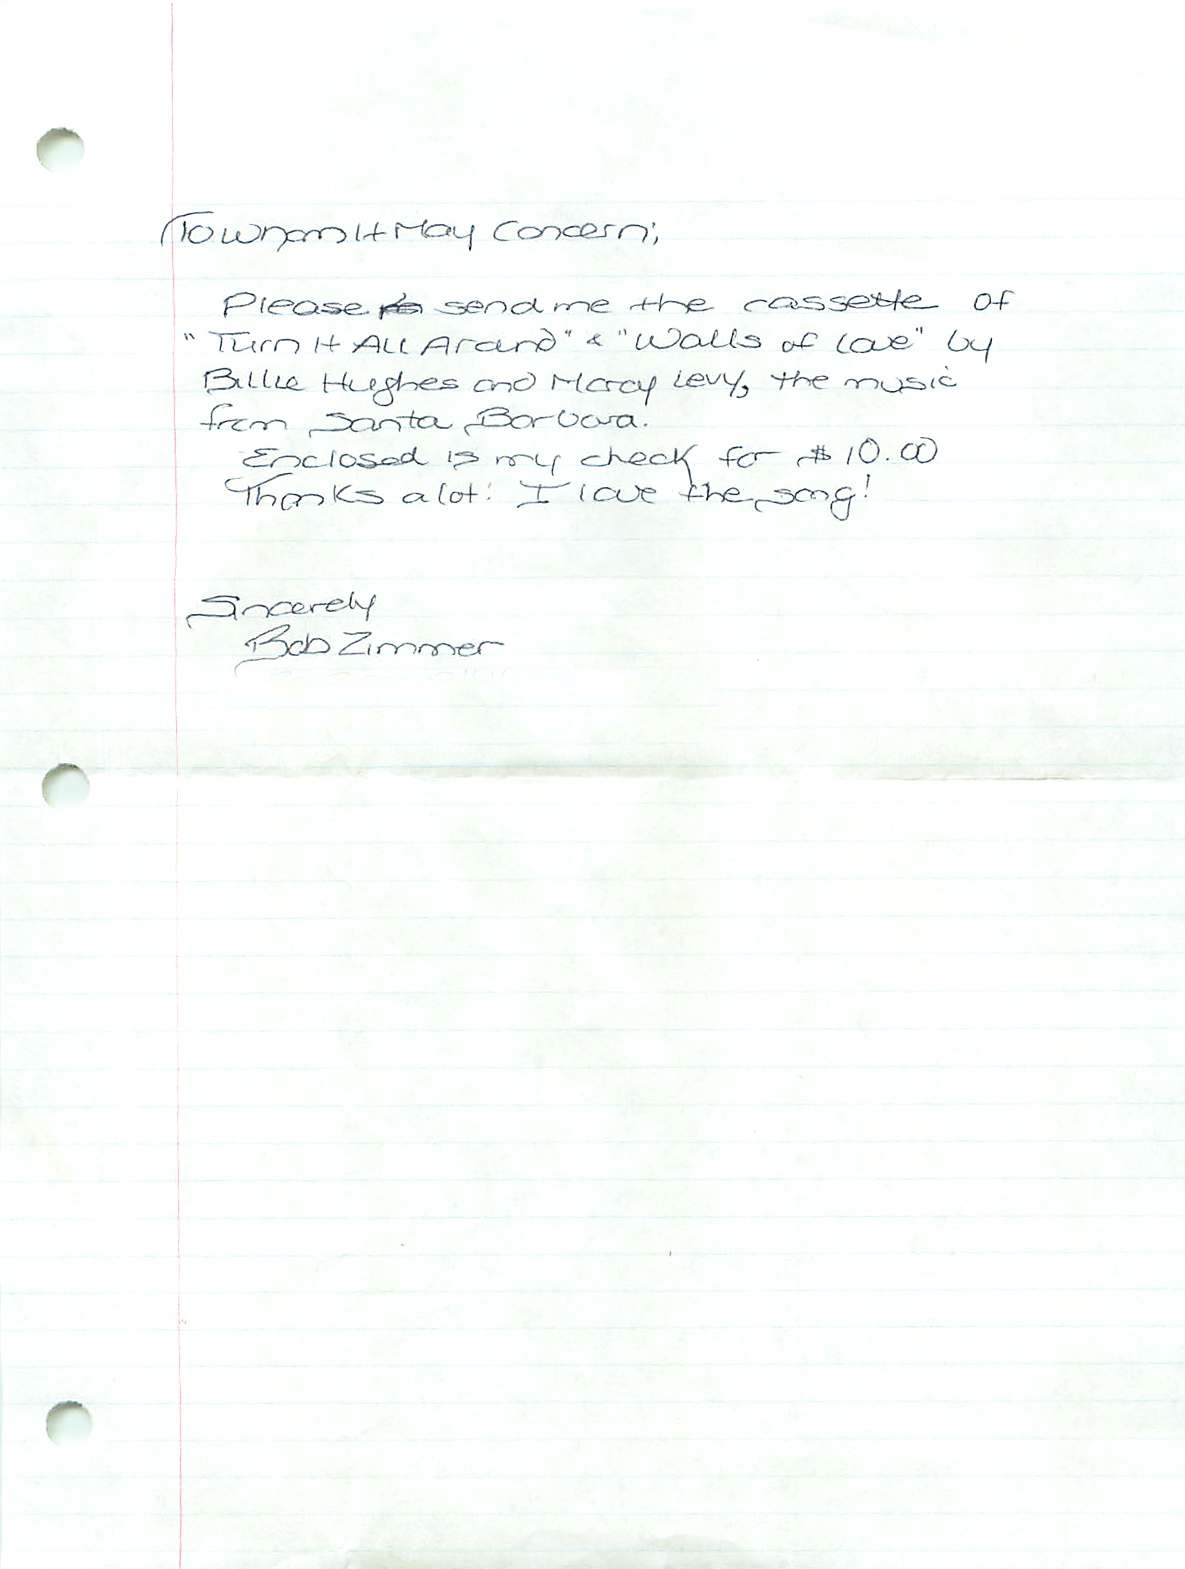 To Whom It May Concern;
Please send me the cassette of
"Turn It All Around" & "Walls of Love" by
Billie Hughes and Marcy Levy, the music
from Santa Barbara.
Enclosed is my check for $10.00
Thanks alot! I love the song!
Sincerely
Bob Zimmer